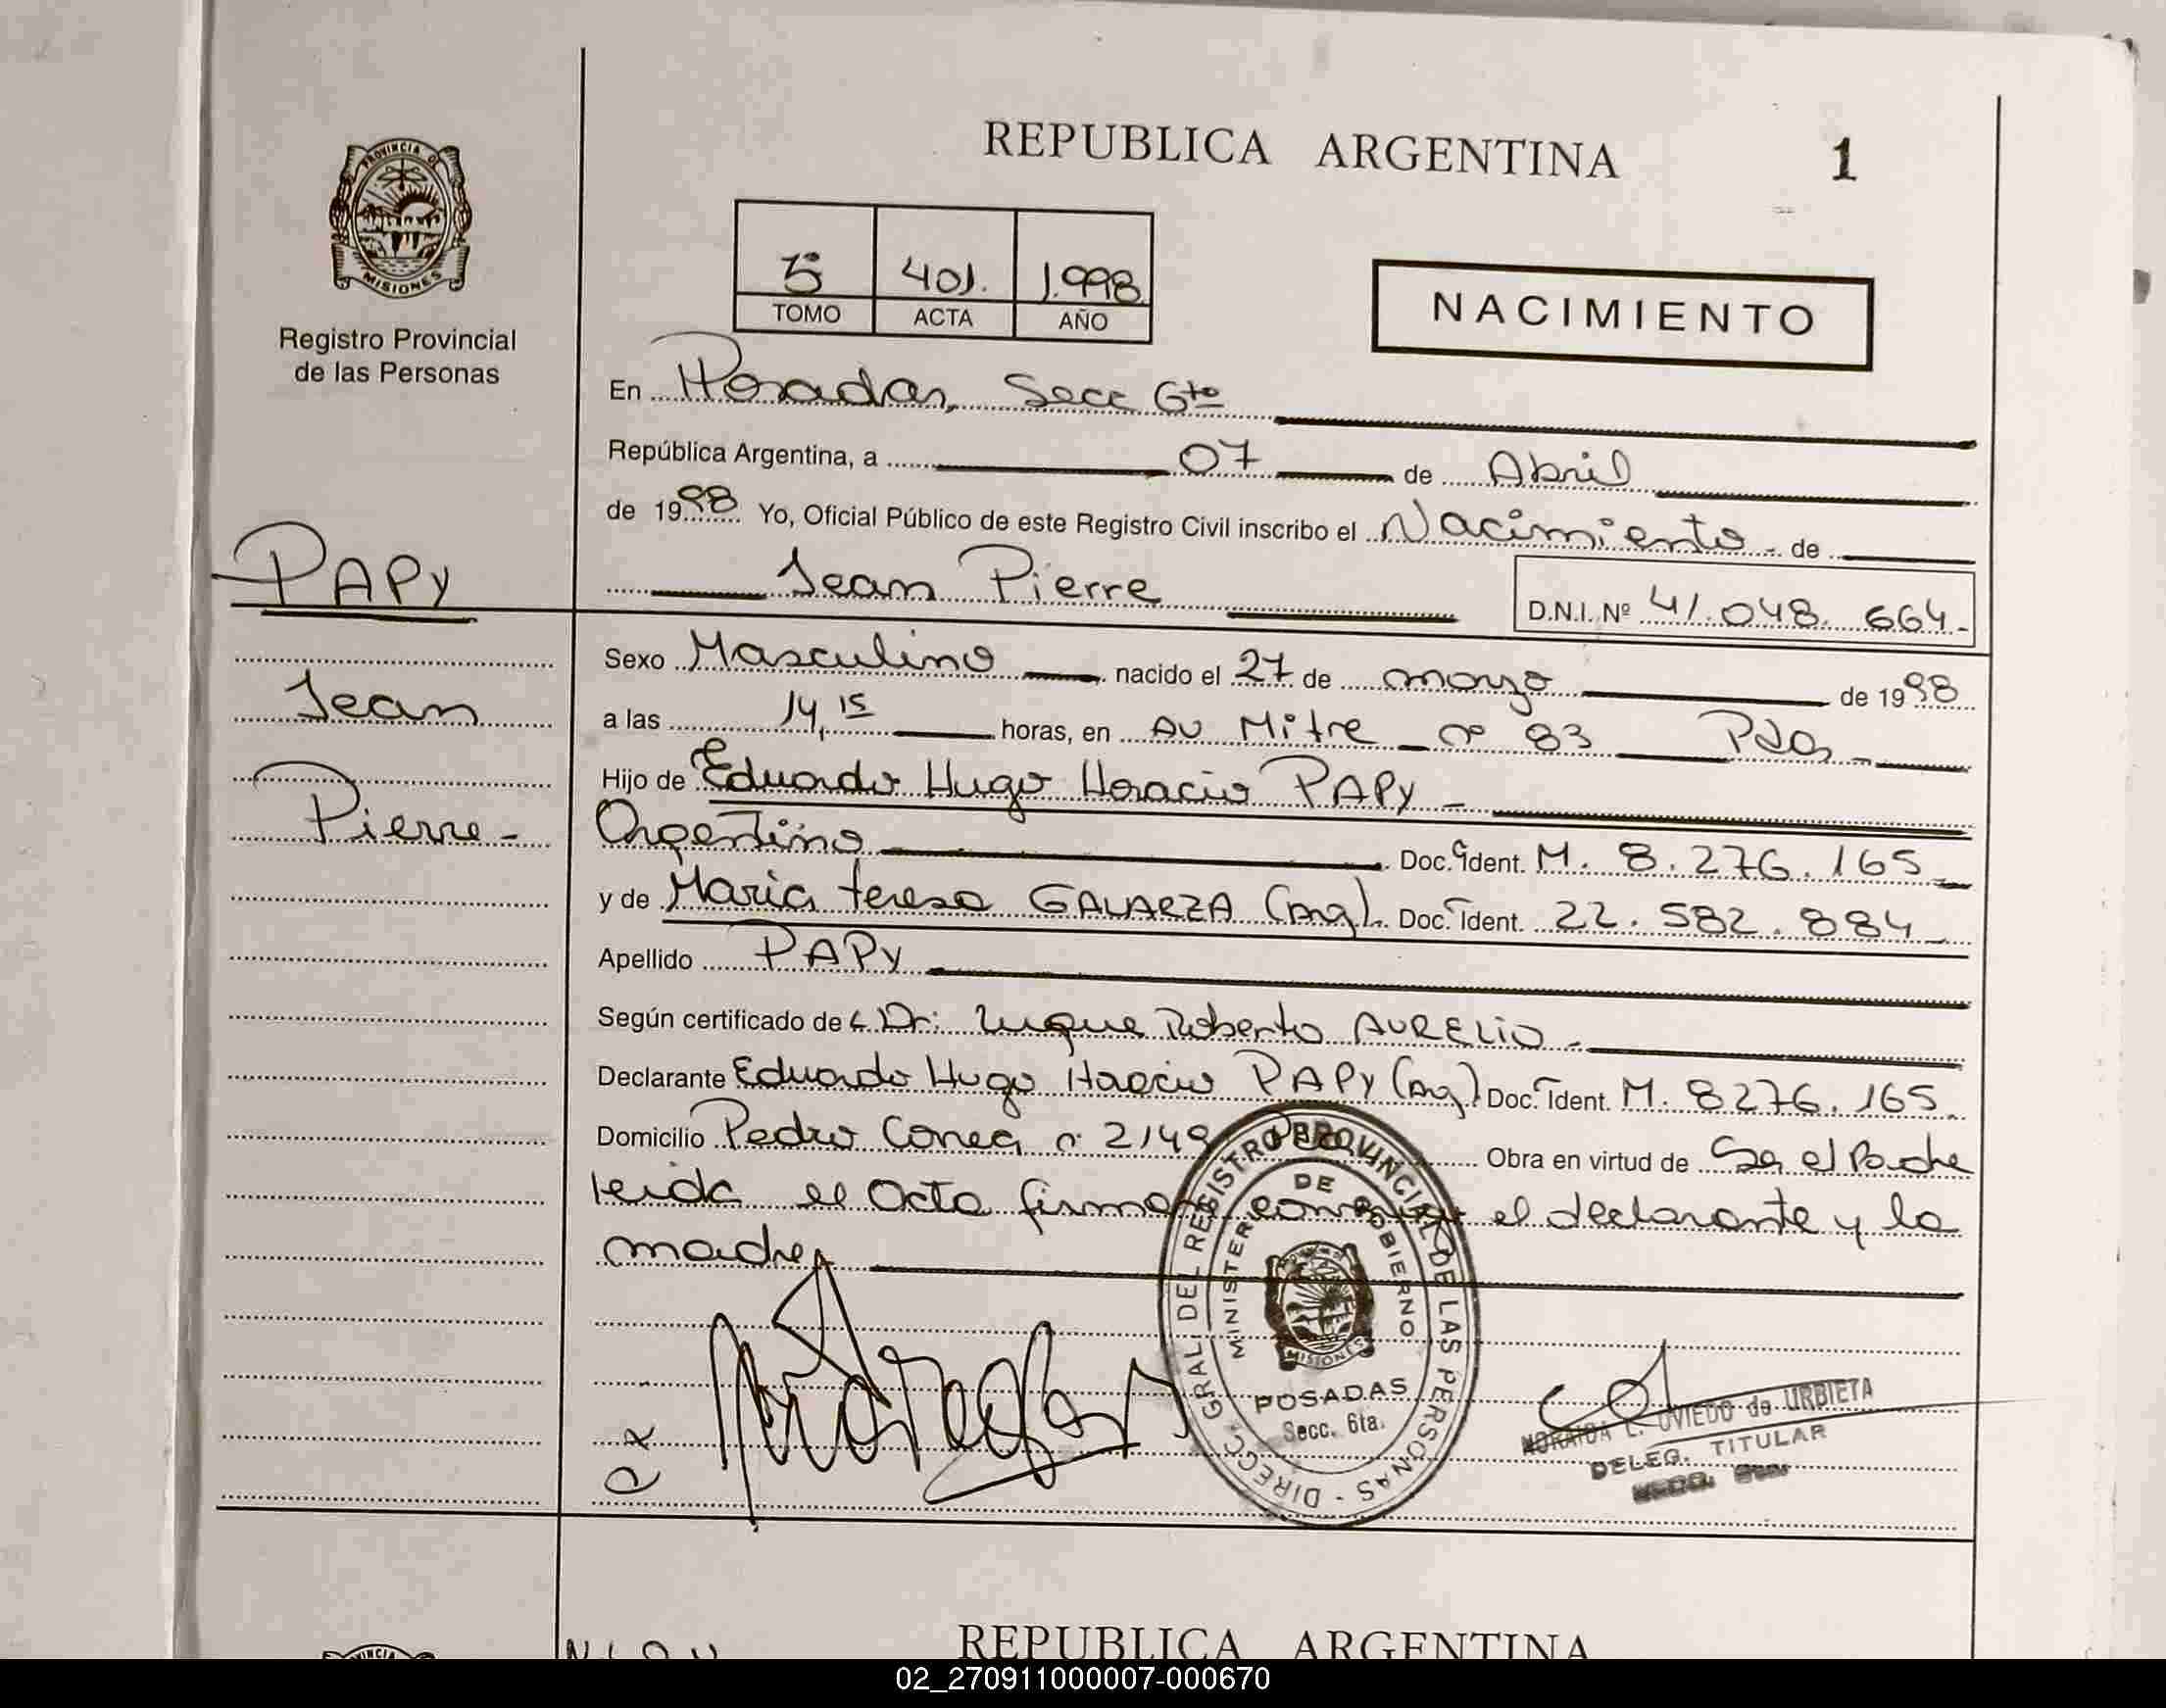 REPUBLICA ARGENTINA
1
PROVINCIA DE
MISIONES
Registro Provincial
de las Personas
5º 401. 1.998
TOMO ACTA AÑO
NACIMIENTO
En Posadas, Secc 6ta
República Argentina, a 07 de Abril
de 1998 Yo, Oficial Público de este Registro Civil inscribo el Nacimiento - de
Jean Pierre
D.N.I. Nº 41.048.664-
PAPY
Jean
Pierre-
Sexo Masculino nacido el 27 de marzo de 1998
a las 14,15 horas, en AV Mitre - nº 83 Pdas -
Hijo de Eduardo Hugo Horacio PAPY -
Argentino Doc. Ident. M. 8.276.165-
y de Maria teresa GALARZA (Arg). Doc. Ident. 22.582.884-
Apellido PAPY
Según certificado de Dr: Luque Roberto AURELIO -
Declarante Eduardo Hugo Horacio PAPY (Arg) Doc. Ident. M. 8276.165-
Domicilio Pedro Conea nº 2149 Obra en virtud de Ser el Padre
leida el Acta firman conmigo el declarante y la
madre
DIRECC. GRAL DEL REGISTRO PROVINCIAL DE LAS PERSONAS -
MINISTERIO DE GOBIERNO
MISIONES
POSADAS
Secc. 6ta.
NORAIDA L. OVIEDO de URBIETA
DELEG. TITULAR
REPUBLICA ARGENTINA
02_270911000007-000670